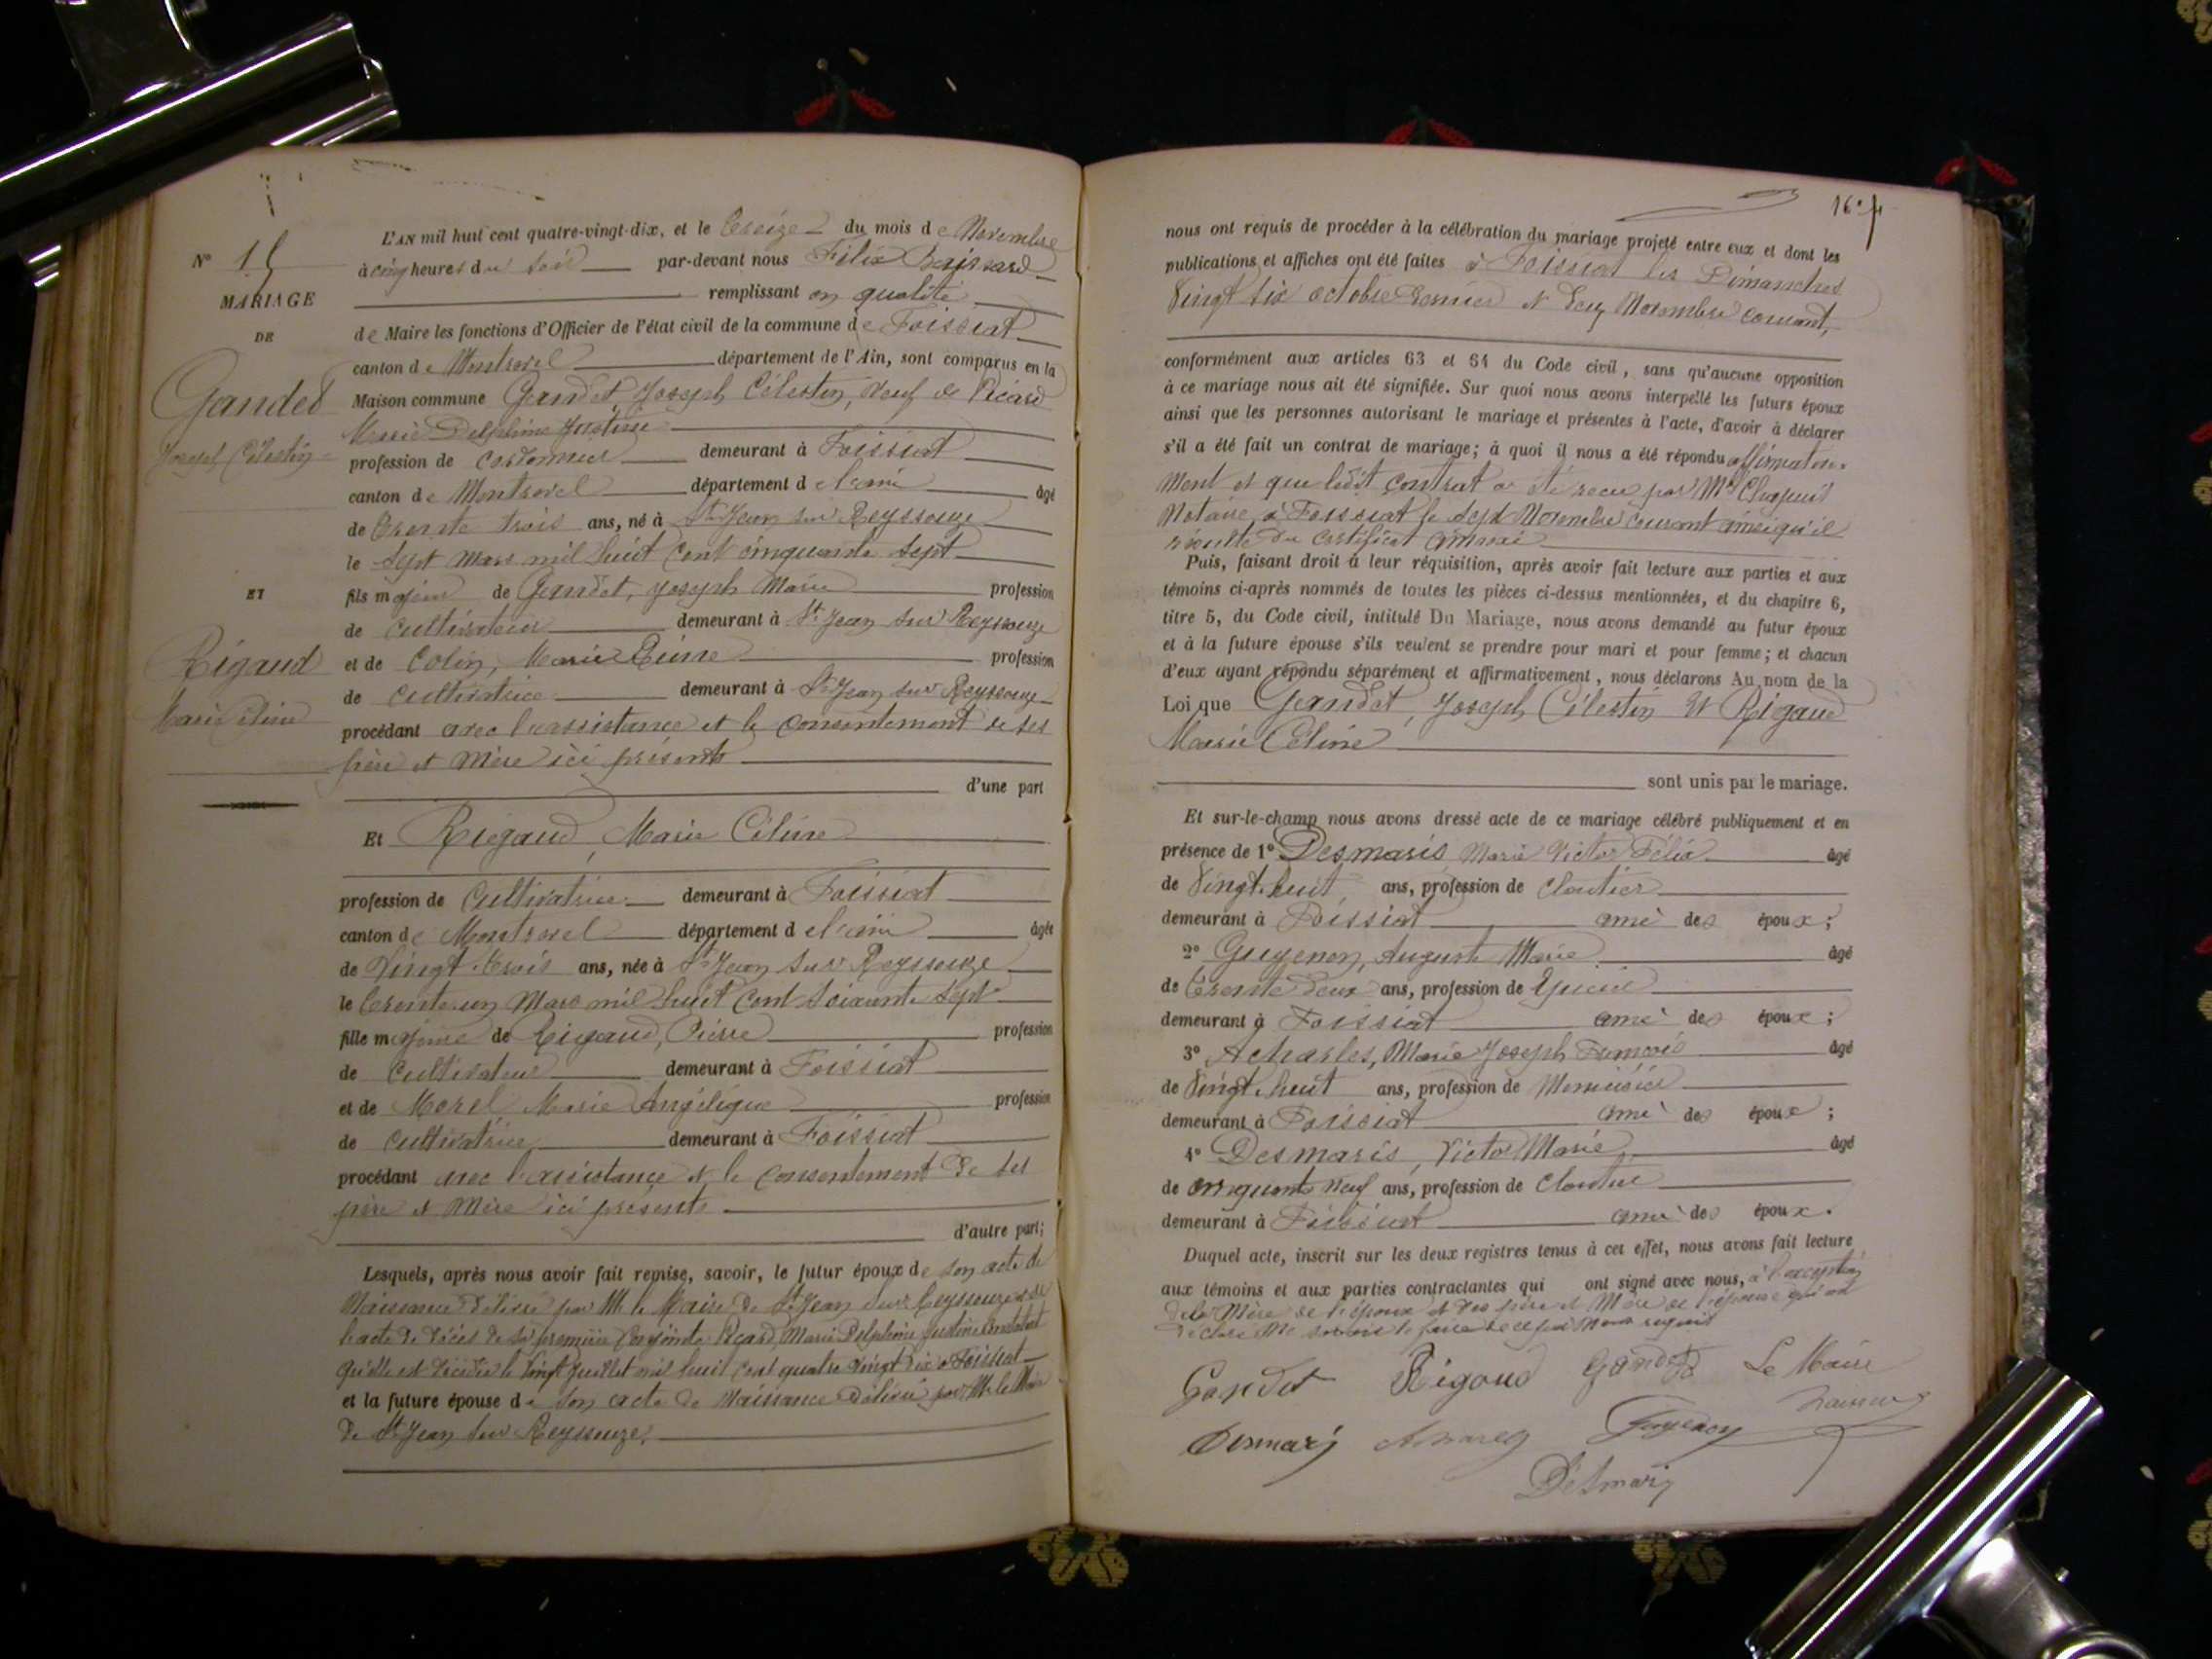 N° 15
MARIAGE
DE
Gandet
Joseph Célestin
ET
Rigaud
Marie Céline
L'AN mil huit cent quatre-vingt-dix, et le treize du mois de Novembre
à cinq heures du soir par-devant nous Félix
remplissant en qualité
de Maire les fonctions d'Officier de l'état civil de la commune de Foissiat
canton de Montrevel département de l'Ain, sont comparus en la
Maison commune Gandet, Joseph Célestin, veuf de Picard
Marie Delphine Justine
profession de cordonnier demeurant à Foissiat
canton de Montrevel département de l'ain âgé
de trente trois ans, né à St Jean sur Reyssouze
le sept Mars mil huit cent cinquante sept
fils majeur de Gandet, Joseph Marie profession
de cultivateur demeurant à St Jean sur Reyssouze
et de Colin, Marie Reine profession
de cultivatrice demeurant à St Jean sur Reyssouze
procédant avec l'assistance et le consentement de ses
père et Mère ici présents
d'une part
Et Rigaud, Marie Céline
profession de Cultivatrice demeurant à Foissiat
canton de Montrevel département de l'ain âgée
de Vingt trois ans, née à St Jean sur Reyssouze
le trente un Mars mil huit cent soixante sept
fille majeure de Rigaud, Pierre profession
de Cultivateur demeurant à Foissiat
et de Morel Marie Angélique profession
de cultivatrice demeurant à Foissiat
procédant avec l'assistance et le consentement de ses
père et Mère ici présents
d'autre part;
Lesquels, après nous avoir fait remise, savoir, le futur époux de son acte de
Naissance délivré par M. le Maire de St Jean sur Reyssouze et de
l'acte de décès de sa première Conjointe Picard, Marie Delphine Justine constatant
qu'elle est décédée le vingt Juillet mil huit cent quatre vingt dix à Foissiat
et la future épouse de son acte de Naissance délivré par M. le Maire
de St Jean sur Reyssouze.
16
nous ont requis de procéder à la célébration du mariage projeté entre eux et dont les
publications et affiches ont été faites à Foissiat les Dimanches
Vingt six octobre dernier et deux Novembre courant,
conformément aux articles 63 et 64 du Code civil, sans qu'aucune opposition
à ce mariage nous ait été signifiée. Sur quoi nous avons interpellé les futurs époux
ainsi que les personnes autorisant le mariage et présentes à l'acte, d'avoir à déclarer
s'il a été fait un contrat de mariage; à quoi il nous a été répondu affirmative-
ment et que ledit contrat a été reçu par Me Chapuis
Notaire à Foissiat le sept Novembre courant ainsi qu'il
résulte du certificat annexé
Puis, faisant droit à leur réquisition, après avoir fait lecture aux parties et aux
témoins ci-après nommés de toutes les pièces ci-dessus mentionnées, et du chapitre 6,
titre 5, du Code civil, intitulé Du Mariage, nous avons demandé au futur époux
et à la future épouse s'ils veulent se prendre pour mari et pour femme; et chacun
d'eux ayant répondu séparément et affirmativement, nous déclarons Au nom de la
Loi que Gandet, Joseph Célestin et Rigaud
Marie Céline
sont unis par le mariage.
Et sur-le-champ nous avons dressé acte de ce mariage célébré publiquement et en
présence de 1° Desmaris Marie Victor Félix âgé
de Vingt huit ans, profession de cloutier
demeurant à Foissiat ami des époux;
2° Guyenon, Auguste Marie âgé
de trente deux ans, profession de Epicier
demeurant à Foissiat ami des époux;
3° Acharles, Marie Joseph François âgé
de Vingt huit ans, profession de Menuisier
demeurant à Foissiat ami des époux;
4° Desmaris, Victor Marie âgé
de cinquante neuf ans, profession de cloutier
demeurant à Foissiat ami des époux.
Duquel acte, inscrit sur les deux registres tenus à cet effet, nous avons fait lecture
aux témoins et aux parties contractantes qui ont signé avec nous, à l'exception
de la Mère de l'époux et des père et Mère de l'épouse qui ont
déclaré ne savoir le faire de ce par nous requis
Gandet Rigaud Gandet Le Maire
Desmaris Guyenon
Desmaris